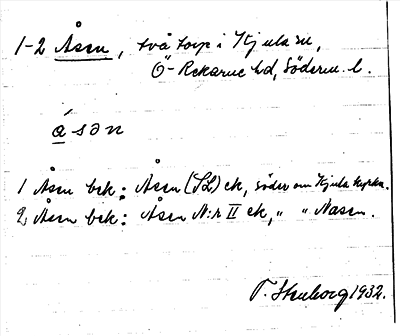 1-2 Åsen, två torp i Kjula sn,
Ö-Rekarne hd, Söderm. l.
åsən
1 Åsen bek: Åsen (SL) ek, söder om Kjula kyrka.
2, Åsen bek: Åsen N:r II ek, " " Nasen.
1932.